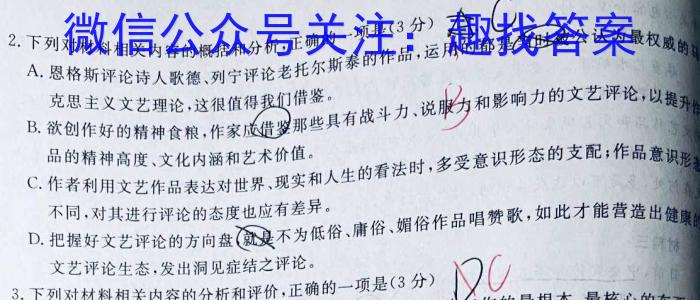 微信公众号关注：趣找答案
2.下列对材料相关内容的概括和分析,正确的一项是(3分)
A.恩格斯评论诗人歌德、列宁评论老托尔斯泰的作品,运用的都是当时被公认为最权威的马
克思主义文艺理论,这很值得我们借鉴。
B.欲创作好的精神食粮,作家应借鉴那些具有战斗力、说服力和影响力的文艺评论,以提升作
品的精神高度、文化内涵和艺术价值。
C.作者利用文艺作品表达对世界、现实和人生的看法时,多受意识形态的支配;作品意识形态
不同,对其进行评论的态度也应有差异。
D.把握好文艺评论的方向盘,就是不为低俗、庸俗、媚俗作品唱赞歌,如此才能营造出健康的
文艺评论生态,发出洞见症结之评论。
3.下列对材料相关内容的分析和评价,正确的一项是(3分)
B